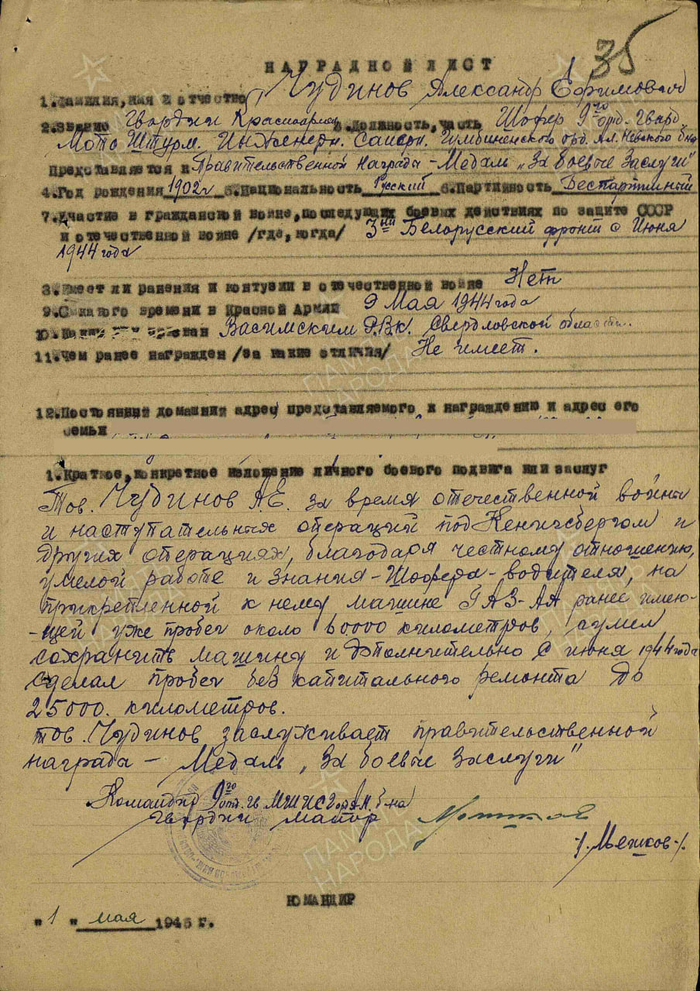 35
НАГРАДНОЙ ЛИСТ
1.Фамилия,имя и отчество Чудинов Александр Ефимович
2.Звание Гвардии Красноармеец 3.Должность,часть Шофер 9го отд. Гвард.
Мото Штурм. Инженерн. Саперн. Гумбиненского орд. Ал. Невского б-на
Представляется к Правительственной Награда - Медаль "За боевые заслуги"
4.Год рождения 1902г 5.Национальность Русский 6.Партийность Беспартийный
7.Участие в гражданской войне,последующих боевых действиях по защите СССР
и отечественной войне /где,когда/ 3ий Белорусский фронт с Июня
1944 года
8.Имеет ли ранения и контузии в отечественной войне Нет
9.С какого времени в Красной Армии 9 Мая 1944 года
10.Каким призван Васимским РВК. Свердловской области.
11.Чем ранее награжден /за какие отличия/ Не имеет.
12.Постоянный домашний адрес представляемого к награждению и адрес его
семьи
1.Краткое,конкретное изложение личного боевого подвига или заслуг
Тов. Чудинов А.Е. за время отечественной войны
и наступательных операций под Кенигсбергом и
других операциях, благодаря честному отношению,
умелой работе и знания - Шофера - водителя, на
прикрепленной к нему машине ГАЗ-АА ранее имею-
-щей уже пробег около 60000 километров, сумел
сохранить машину и дополнительно с июня 1944 года
сделал пробег без капитального ремонта до
25000. километров.
тов. Чудинов заслуживает правительственной
награда - Медаль "За боевые заслуги"
Командир 9го отд. гв МШИСГорд.А.Н. б-на
гвардии майор
/Мешков/
КОМАНДИР
"1" мая 1945 г.
ПАМЯТЬ НАРОДА